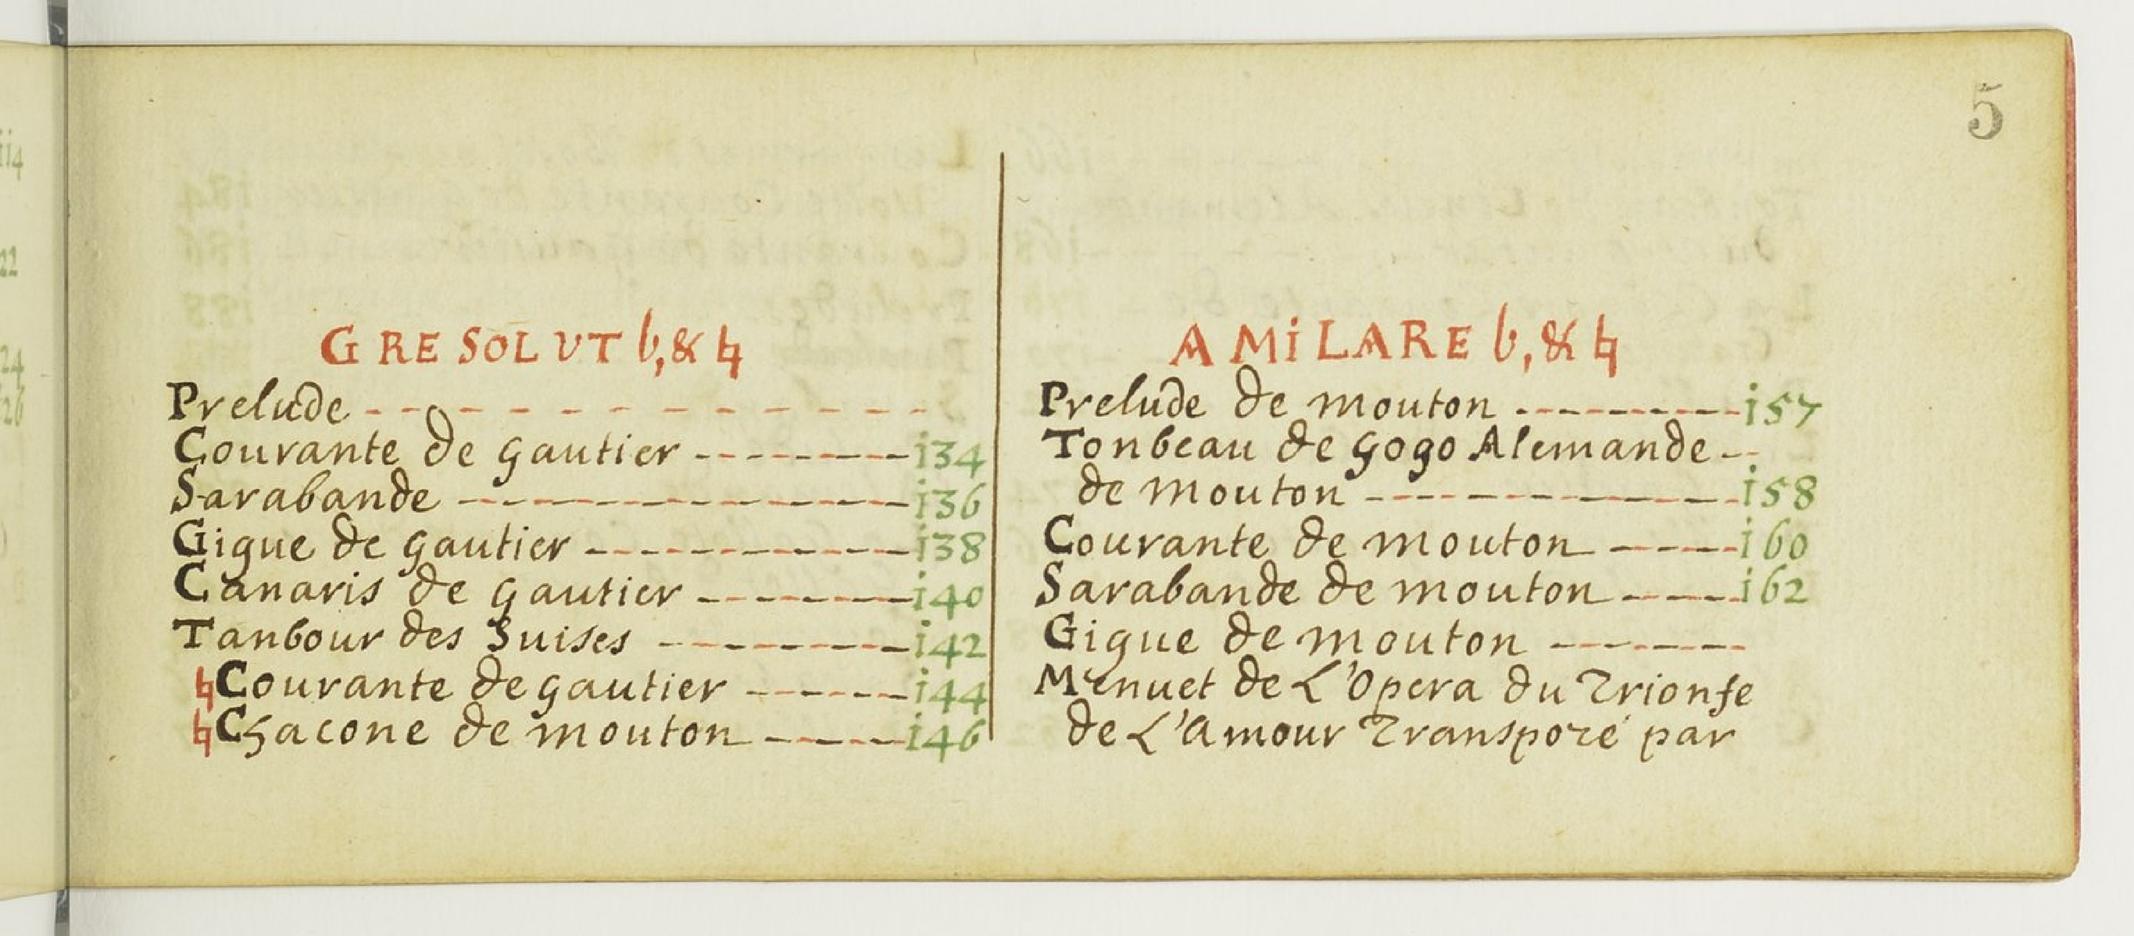 5
G RE SOL VT b, & ♮
Prelude
Courante de gautier i34
Sarabande i36
Gigue de gautier i38
Canaris de gautier i40
Tanbour des Suises i42
♮Courante de gautier i44
♮Chacone de mouton i46
A MI LA RE b, & ♮
Prelude de mouton i57
Tonbeau de gogo Alemande
de mouton i58
Courante de mouton i60
Sarabande de mouton i62
Gigue de mouton
Menuet de L'Opera du Trionfe
de L'Amour Transpozé par
ii4
22
24
26